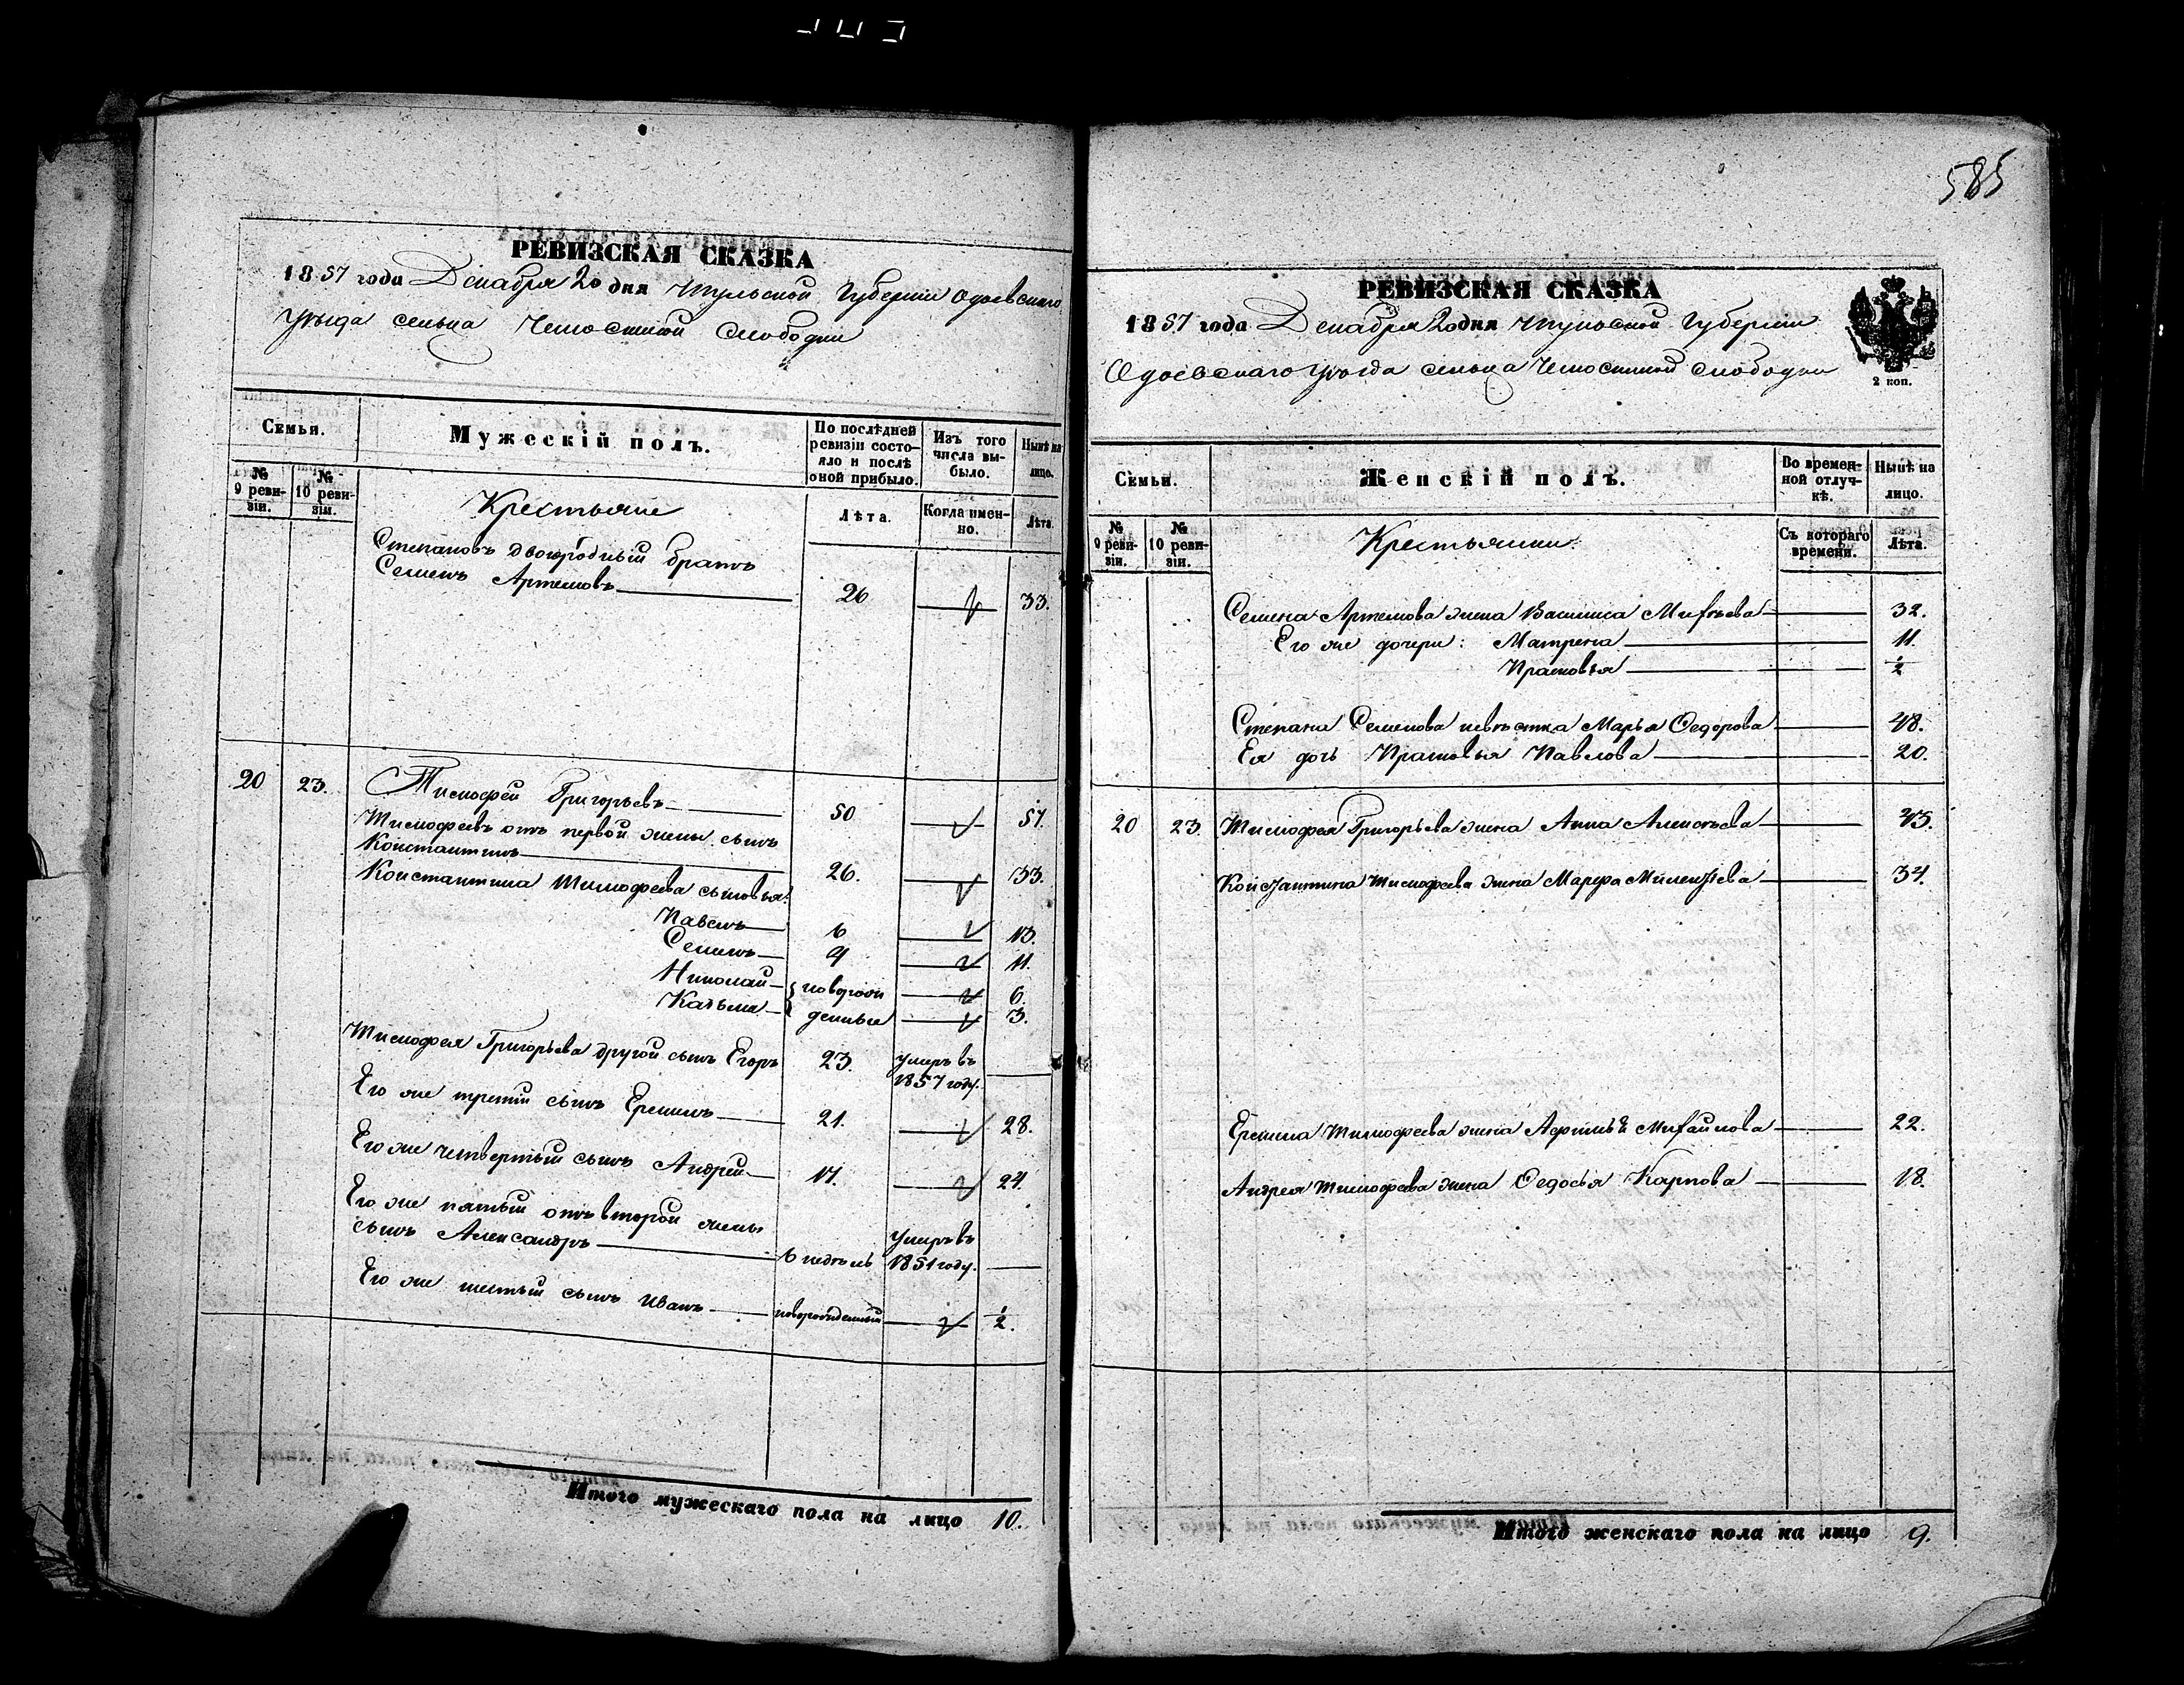 585
РЕВИЗСКАЯ СКАЗКА
1857 года Декабря 20 дня Тульской Губерніи Одоевскаго
уѣзда сельца слободки
Семьи.
Мужескій полъ.
По послѣдней ревизіи состояло и послѣ оной прибыло.
Изъ того числа выбыло.
Нынѣ на лицо.
№ 9 ревизіи.
№ 10 ревизіи.
Крестьяне
Лѣта.
Когда именно.
Лѣта.
Степановъ двоюродный братъ
Семенъ Артемовъ 26 33.
20 23. Тимофей Григорьевъ 50 57.
Тимофеевъ отъ первой жены сынъ
Константинъ 26. 33.
Константина Тимофеева сыновья:
Павелъ 6 13.
Семенъ 4 11.
Николай новорож 6.
Казьма денные 3.
Тимофея Григорьева другой сынъ Егоръ 23. умеръ въ
1857 году.
Его же третій сынъ Еремъ 21. 28.
Его же четвертый сынъ Андрей 17. 24.
Его же пятый отъ второй жены
сынъ Александръ 6 недѣль Умеръ въ 1851 году.
Его же шестый сынъ Иванъ новорожденный 1/2.
Итого мужескаго пола на лицо 10.
РЕВИЗСКАЯ СКАЗКА
1857 года Декабря 20 дня Тульской Губерніи
Одоевскаго уѣзда сельца слободки
2 коп.
Семьи.
Женскій полъ.
Во временной отлучкѣ.
Нынѣ на лицо.
№ 9 ревизіи.
№ 10 ревизіи.
Крестьянки.
Съ котораго времени.
Лѣта.
Семена Артемова жена Василиса Михѣева 32.
Его же дочери: Матрена 11.
Прасковья 1/2
Степана Семенова невѣстка Марья Ѳедорова 48.
Ея дочь Прасковья Павлова 20.
20 23. Тимофея Григорьева жена Анна Алексѣева 45.
Константина Тимофеева жена Марфа 34.
Еремина Тимофеева жена Афимья Михайлова 22.
Андрея Тимофеева жена Ѳедосья Карпова 18.
Итого женскаго пола на лицо 9.